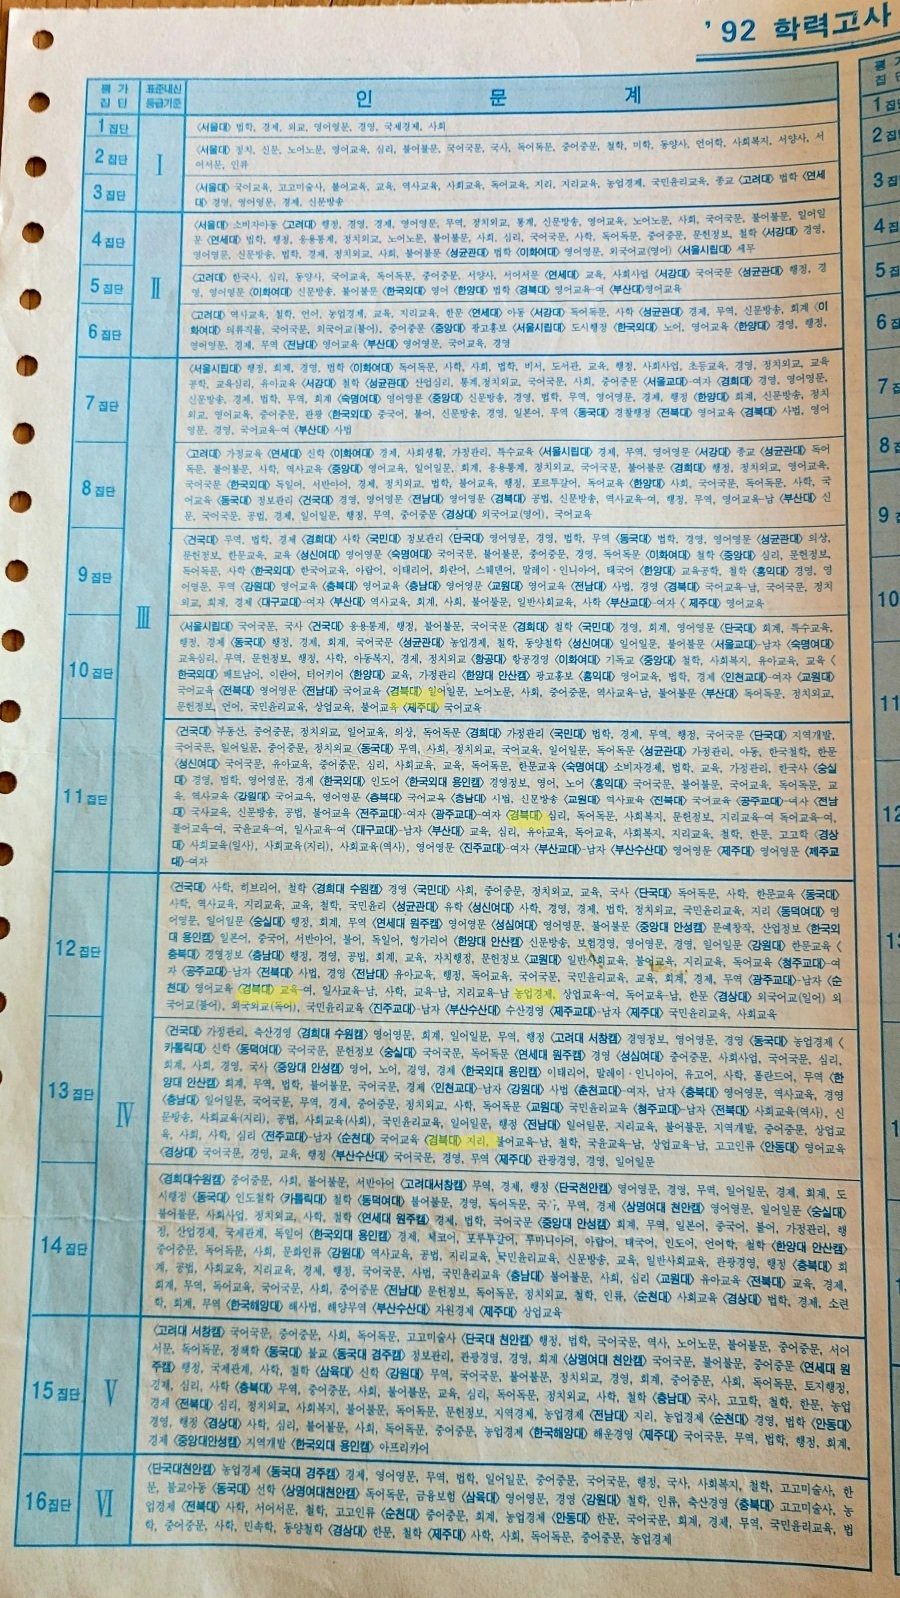 '92 학력고사
평 가 집 단
표준내신 등급기준
인 문 계
1집단
〈서울대〉 법학, 경제, 외교, 영어영문, 경영, 국제경제, 사회
2집단
I
〈서울대〉 정치, 신문, 노어노문, 영어교육, 심리, 불어불문, 국어국문, 국사, 독어독문, 중어중문, 철학, 미학, 동양사, 언어학, 사회복지, 서양사, 서
어서문, 인류
3집단
〈서울대〉 국어교육, 고고미술사, 불어교육, 교육, 역사교육, 사회교육, 독어교육, 지리, 지리교육, 농업경제, 국민윤리교육, 종교 〈고려대〉 법학 〈연세
대〉 경영, 영어영문, 경제, 신문방송
4집단
〈서울대〉 소비자아동 〈고려대〉 행정, 경영, 경제, 영어영문, 무역, 정치외교, 통계, 신문방송, 영어교육, 노어노문, 사회, 국어국문, 불어불문, 일어일
문 〈연세대〉 법학, 행정, 응용통계, 정치외교, 노어노문, 불어불문, 사회, 심리, 국어국문, 사학, 독어독문, 중어중문, 문헌정보, 철학 〈서강대〉 경영,
영어영문, 신문방송, 법학, 경제, 정치외교, 사회, 불어불문 〈성균관대〉 법학 〈이화여대〉 영어영문, 외국어교(영어) 〈서울시립대〉 세무
5집단
II
〈고려대〉 한국사, 심리, 동양사, 국어교육, 독어독문, 중어중문, 서양사, 서어서문 〈연세대〉 교육, 사회사업 〈서강대〉 국어국문 〈성균관대〉 행정, 경
영, 영어영문 〈이화여대〉 신문방송, 불어불문 〈한국외대〉 영어 〈한양대〉 법학 〈경북대〉 영어교육-여 〈부산대〉영어교육
6집단
〈고려대〉 역사교육, 철학, 언어, 농업경제, 교육, 지리교육, 한문 〈연세대〉 아동 〈서강대〉 독어독문, 사학 〈성균관대〉 경제, 무역, 신문방송, 회계 〈이
화여대〉 의류직물, 국어국문, 외국어교(불어), 중어중문 〈중앙대〉 광고홍보 〈서울시립대〉 도시행정 〈한국외대〉 노어, 영어교육 〈한양대〉 경영, 행정,
영어영문, 경제, 무역 〈전남대〉 영어교육 〈부산대〉 영어영문, 국어교육, 경영
7집단
〈서울시립대〉 행정, 회계, 경영, 법학 〈이화여대〉 독어독문, 사학, 사회, 법학, 비서, 도서관, 교육, 행정, 사회사업, 초등교육, 경영, 정치외교, 교육
공학, 교육심리, 유아교육 〈서강대〉 철학 〈성균관대〉 산업심리, 통계,정치외교, 국어국문, 사회, 중어중문 〈서울교대〉-여자 〈경희대〉 경영, 영어영문,
신문방송, 경제, 법학, 무역, 회계 〈숙명여대〉 영어영문 〈중앙대〉 신문방송, 경영, 법학, 무역, 영어영문, 경제, 행정 〈한양대〉 회계, 신문방송, 정치
외교, 영어교육, 중어중문, 관광 〈한국외대〉 중국어, 불어, 신문방송, 경영, 일본어, 무역 〈동국대〉 경찰행정 〈전북대〉 영어교육 〈경북대〉 사법, 영어
영문, 경영, 국어교육-여 〈부산대〉 사법
8집단
〈고려대〉 가정교육 〈연세대〉 신학 〈이화여대〉 경제, 사회생활, 가정관리, 특수교육 〈서울시립대〉 경제, 무역, 영어영문 〈서강대〉 종교 〈성균관대〉 독어
독문, 불어불문, 사학, 역사교육 〈중앙대〉 영어교육, 일어일문, 회계, 응용통계, 정치외교, 국어국문, 불어불문 〈경희대〉 행정, 정치외교, 영어교육,
국어국문 〈한국외대〉 독일어, 서반아어, 경제, 정치외교, 법학, 불어교육, 행정, 포르투갈어, 독어교육 〈한양대〉 사회, 국어국문, 독어독문, 사학, 국
어교육 〈동국대〉 정보관리 〈건국대〉 경영, 영어영문 〈전남대〉 영어영문 〈경북대〉 공법, 신문방송, 역사교육-여, 행정, 무역, 영어교육-남 〈부산대〉 신
문, 국어국문, 공법, 경제, 일어일문, 행정, 무역, 중어중문 〈경상대〉 외국어교(영어), 국어교육
9집단
III
〈건국대〉 무역, 법학, 경제 〈경희대〉 사학 〈국민대〉 정보관리 〈단국대〉 영어영문, 경영, 법학, 무역 〈동국대〉 법학, 경영, 영어영문 〈성균관대〉 의상,
문헌정보, 한문교육, 교육 〈성신여대〉 영어영문 〈숙명여대〉 국어국문, 불어불문, 중어중문, 경영, 독어독문 〈이화여대〉 철학 〈중앙대〉 심리, 문헌정보,
독어독문, 사학 〈한국외대〉 한국어교육, 아랍어, 이태리어, 화란어, 스웨덴어, 말레이·인니아어, 태국어 〈한양대〉 교육공학, 철학 〈홍익대〉 경영, 영
어영문, 무역 〈강원대〉 영어교육 〈충북대〉 영어교육 〈충남대〉 영어영문 〈교원대〉 영어교육 〈전남대〉 사법, 경영 〈경북대〉 국어교육-남, 국어국문, 정치
외교, 회계, 경제 〈대구교대〉-여자 〈부산대〉 역사교육, 회계, 사회, 불어불문, 일반사회교육, 사학 〈부산교대〉-여자 〈 제주대〉 영어교육
10집단
〈서울시립대〉 국어국문, 국사 〈건국대〉 응용통계, 행정, 불어불문, 국어국문 〈경희대〉 철학 〈국민대〉 경영, 회계, 영어영문 〈단국대〉 회계, 특수교육,
행정, 경제 〈동국대〉 행정, 경제, 회계, 국어국문 〈성균관대〉 농업경제, 철학, 동양철학 〈성신여대〉 일어일문, 불어불문 〈서울교대〉-남자 〈숙명여대〉
교육심리, 무역, 문헌정보, 행정, 사학, 아동복지, 경제, 정치외교 〈항공대〉 항공경영 〈이화여대〉 기독교 〈중앙대〉 철학, 사회복지, 유아교육, 교육 〈
한국외대〉 베트남어, 이란어, 터어키어 〈한양대〉 교육, 가정관리 〈한양대 안산캠〉 광고홍보 〈홍익대〉 영어교육, 법학, 경제 〈인천교대〉-여자 〈교원대〉
국어교육 〈전북대〉 영어영문 〈전남대〉 국어교육 〈경북대〉 일어일문, 노어노문, 사회, 중어중문, 역사교육-남, 불어불문 〈부산대〉 독어독문, 정치외교,
문헌정보, 언어, 국민윤리교육, 상업교육, 불어교육 〈제주대〉 국어교육
11집단
〈건국대〉 부동산, 중어중문, 정치외교, 일어교육, 의상, 독어독문 〈경희대〉 가정관리 〈국민대〉 법학, 경제, 무역, 행정, 국어국문 〈단국대〉 지역개발,
국어국문, 일어일문, 중어중문, 정치외교 〈동국대〉 무역, 사회, 정치외교, 국어교육, 일어일문, 독어독문 〈성균관대〉 가정관리, 아동, 한국철학, 한문
〈성신여대〉 국어국문, 유아교육, 중어중문, 심리, 사회교육, 교육, 독어독문, 한문교육 〈숙명여대〉 소비자경제, 법학, 교육, 가정관리, 한국사 〈숭실
대〉 경영, 법학, 영어영문, 경제 〈한국외대〉 인도어 〈한국외대 용인캠〉 경영정보, 영어, 노어 〈홍익대〉 국어국문, 불어불문, 국어교육, 독어독문, 교
육, 역사교육 〈강원대〉 국어교육, 영어영문 〈충북대〉 국어교육 〈충남대〉 사법, 신문방송 〈교원대〉 역사교육 〈전북대〉 국어교육 〈공주교대〉-여자 〈전남
대〉 국사교육, 신문방송, 공법, 불어교육 〈전주교대〉-여자 〈광주교대〉-여자 〈경북대〉 심리, 독어독문, 사회복지, 문헌정보, 지리교육-여 독어교육-여,
불어교육-여, 국윤교육-여, 일사교육-여 〈대구교대〉-남자 〈부산대〉 교육, 심리, 유아교육, 독어교육, 사회복지, 지리교육, 철학, 한문, 고고학 〈경상
대〉 사회교육(일사), 사회교육(지리), 사회교육(역사), 영어영문 〈진주교대〉-여자 〈부산교대〉-남자 〈부산수산대〉 영어영문 〈제주대〉 영어영문 〈제주교
대〉-여자
12집단
〈건국대〉 사학, 히브리어, 철학 〈경희대 수원캠〉 경영 〈국민대〉 사회, 중어중문, 정치외교, 교육, 국사 〈단국대〉 독어독문, 사학, 한문교육 〈동국대〉
사학, 역사교육, 지리교육, 교육, 철학, 국민윤리 〈성균관대〉 유학 〈성신여대〉 사학, 경영, 경제, 법학, 정치외교, 국민윤리교육, 지리 〈동덕여대〉 영
어영문, 일어일문 〈숭실대〉 행정, 회계, 무역 〈연세대 원주캠〉 영어영문 〈성심여대〉 영어영문, 불어불문 〈중앙대 안성캠〉 문예창작, 산업정보 〈한국외
대 용인캠〉 일본어, 중국어, 서반아어, 불어, 독일어, 헝가리어 〈한양대 안산캠〉 신문방송, 보험경영, 영어영문, 경영, 일어일문 〈강원대〉 한문교육 〈
충북대〉 경영정보 〈충남대〉 행정, 경영, 공법, 회계, 교육, 자치행정, 문헌정보 〈교원대〉 일반사회교육, 불어교육, 지리교육, 독어교육 〈청주교대〉-여
자 〈공주교대〉-남자 〈전북대〉 사법, 경영 〈전남대〉 유아교육, 행정, 독어교육, 국어국문, 국민윤리교육, 교육, 회계, 경제, 무역 〈광주교대〉-남자 〈순
천대〉 영어교육 〈경북대〉 교육-여, 일사교육-남, 사학, 교육-남, 지리교육-남 농업경제, 상업교육-여, 독어교육-남, 한문 〈경상대〉 외국어교(일어) 외
국어교(불어), 외국외교(독어), 국민윤리교육 〈진주교대〉-남자 〈부산수산대〉 수산경영 〈제주교대〉-남자 〈제주대〉 국민윤리교육, 사회교육
13집단
IV
〈건국대〉 가정관리, 축산경영 〈경희대 수원캠〉 영어영문, 회계, 일어일문, 무역, 행정 〈고려대 서창캠〉 경영정보, 영어영문, 경영 〈동국대〉 농업경제 〈
카톨릭대〉 신학 〈동덕여대〉 국어국문, 문헌정보 〈숭실대〉 국어국문, 독어독문 〈연세대 원주캠〉 경영 〈성심여대〉 중어중문, 사회사업, 국어국문, 심리,
회계, 사회, 경영, 국사 〈중앙대 안성캠〉 영어, 노어, 경영, 경제 〈한국외대 용인캠〉 이태리어, 말레이·인니아어, 유고어, 사학, 폴란드어, 무역 〈한
양대 안산캠〉 회계, 무역, 법학, 불어불문, 국어국문, 경제 〈인천교대〉-남자 〈강원대〉 사법 〈춘천교대〉-여자, 남자 〈충북대〉 영어영문, 역사교육, 경영
〈충남대〉 일어일문, 국어국문, 무역, 경제, 중어중문, 정치외교, 사학, 독어독문 〈교원대〉 국민윤리교육 〈청주교대〉-남자 〈전북대〉 사회교육(역사), 신
문방송, 사회교육(지리), 공법, 사회교육(사회), 국민윤리교육, 일어일문, 행정 〈전남대〉 일어일문, 지리교육, 불어불문, 지역개발, 중어중문, 상업교
육, 사회, 사학, 심리 〈전주교대〉-남자 〈순천대〉 국어교육 〈경북대〉 지리, 불어교육-남, 철학, 국윤교육-남, 상업교육-남, 고고인류 〈안동대〉 영어교육
〈경상대〉 국어국문, 경영, 교육, 행정 〈부산수산대〉 국어국문, 경영, 무역 〈제주대〉 관광경영, 경영, 일어일문
14집단
〈경희대수원캠〉 중어중문, 사회, 불어불문, 서반아어 〈고려대서창캠〉 무역, 경제, 행정 〈단국천안캠〉 영어영문, 경영, 무역, 일어일문, 경제, 회계, 도
시행정 〈동국대〉 인도철학 〈카톨릭대〉 철학 〈동덕여대〉 불어불문, 경영, 독어독문, 무역, 경제 〈상명여대 천안캠〉 영어영문, 일어일문 〈숭실대〉
불어불문, 사회사업, 정치외교, 사학, 철학 〈연세대 원주캠〉 경제, 법학, 국어국문 〈중앙대 안성캠〉 회계, 무역, 일본어, 중국어, 불어, 가정관리, 행
정, 산업경제, 국제관계, 독일어 〈한국외대 용인캠〉 경제, 체코어, 포루투갈어, 루마니아어, 아랍어, 태국어, 인도어, 언어학, 철학 〈한양대 안산캠〉
중어중문, 독어독문, 사회, 문화인류 〈강원대〉 역사교육, 공법, 지리교육, 국민윤리교육, 신문방송, 교육, 일반사회교육, 관광경영, 행정 〈충북대〉 회
계, 공법, 사회교육, 지리교육, 경제, 행정, 국어국문, 사법, 국민윤리교육 〈충남대〉 불어불문, 사회, 심리 〈교원대〉 유아교육 〈전북대〉 교육, 경제,
회계, 무역, 독어교육, 국어국문, 사회, 중어중문 〈전남대〉 문헌정보, 독어독문, 정치외교, 철학, 인류, 〈순천대〉 사회교육 〈경상대〉 법학, 경제, 소련
학, 회계, 무역 〈한국해양대〉 해사법, 해양무역 〈부산수산대〉 자원경제 〈제주대〉 상업교육
15집단
V
〈고려대 서창캠〉 국어국문, 중어중문, 사회, 독어독문, 고고미술사 〈단국대 천안캠〉 행정, 법학, 국어국문, 역사, 노어노문, 불어불문, 중어중문, 서어
서문, 독어독문, 정책학 〈동국대〉 불교 〈동국대 경주캠〉 정보관리, 관광경영, 경영, 회계 〈상명여대 천안캠〉 국어국문, 불어불문, 중어중문 〈연세대 원
주캠〉 행정, 국제관계, 사학, 철학 〈삼육대〉 신학 〈강원대〉 무역, 국어국문, 불어불문, 정치외교, 경영, 회계, 중어중문, 사회, 독어독문, 토지행정,
경제, 심리, 사학 〈충북대〉 무역, 중어중문, 사회, 불어불문, 교육, 심리, 독어독문, 정치외교, 사학, 철학 〈충남대〉 국사, 고고학, 철학, 한문, 농업
경제 〈전북대〉 심리, 정치외교, 사회복지, 불어불문, 독어독문, 문헌정보, 지역경제, 농업경제 〈전남대〉 지리, 농업경제 〈순천대〉 경영, 법학 〈안동대〉
경영, 행정 〈경상대〉 사학, 심리, 불어불문, 사회, 독어독문, 중어중문, 농업경제 〈한국해양대〉 해운경영 〈제주대〉 국어국문, 무역, 법학, 행정, 회계,
경제 〈중앙대안성캠〉 지역개발 〈한국외대 용인캠〉 아프리카어
16집단
VI
〈단국대천안캠〉 농업경제 〈동국대 경주캠〉 경제, 영어영문, 무역, 법학, 일어일문, 중어중문, 국어국문, 행정, 국사, 사회복지, 철학, 고고미술사, 한
문, 불교아동 〈동국대〉 선학 〈상명여대천안캠〉 독어독문, 금융보험 〈삼육대〉 영어영문, 경영 〈강원대〉 철학, 인류, 축산경영 〈충북대〉 고고미술사, 농
업경제 〈전북대〉 사학, 서어서문, 철학, 고고인류 〈순천대〉 중어중문, 회계, 농업경제 〈안동대〉 한문, 국어국문, 회계, 경제, 무역, 국민윤리교육, 법
학, 중어중문, 사학, 민속학, 동양철학 〈경상대〉 한문, 철학 〈제주대〉 사학, 사회, 독어독문, 중어중문, 농업경제